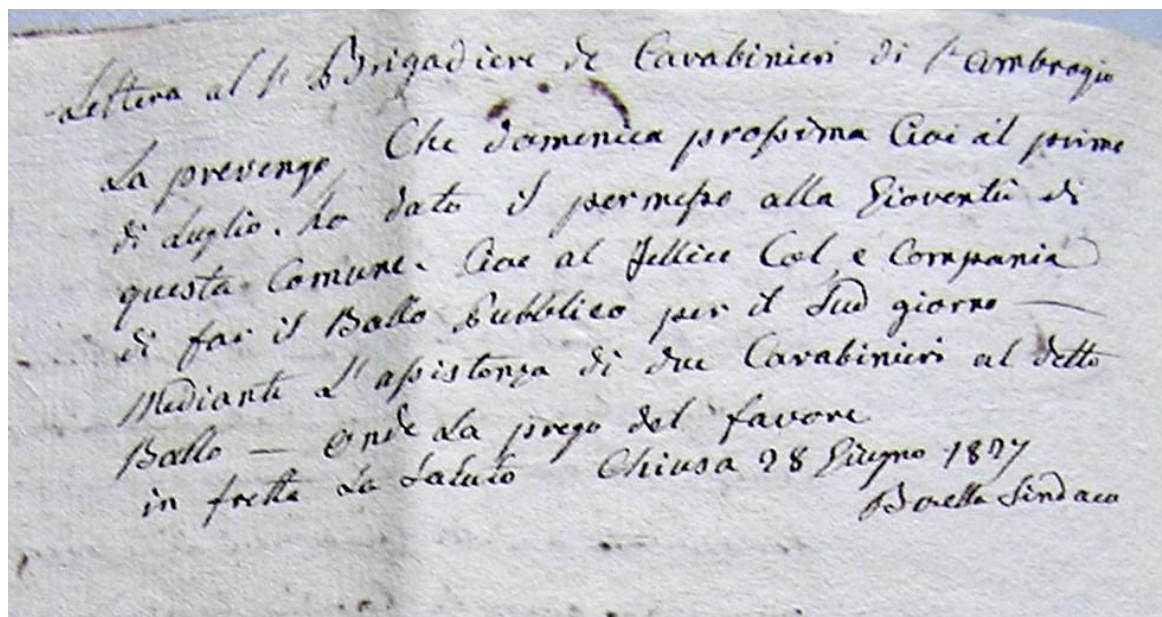 Lettera al Sr Brigadiere de Carabinieri di Sr Ambrogio
La prevengo, Che domenica prossima Cioè al primo
di Luglio. ho dato il permesso alla Gioventù di
questa Comune. Cioe al Fellice Col e Compania
di far il Ballo Pubblico per il Sud giorno —
Mediante L'assistenza di due Carabinieri al detto
Ballo — Onde La prego del favore
in fretta La Saluto Chiusa 28 Giugno 1827
Borella Sindaco